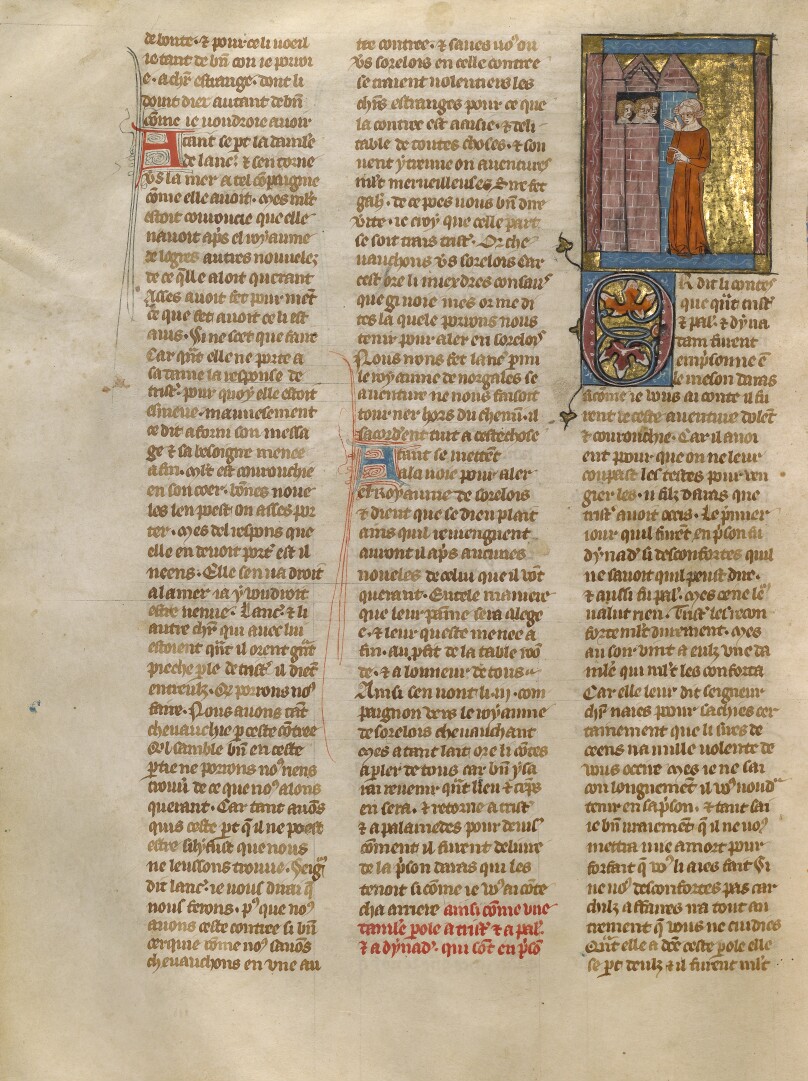 de bonte. ⁊ pour ce li voeil
ie tant de bn̄ con ie porroi
e. a chr̄ estrange. dont li
doint diex autant de bn̄
cōme ie voudroie avoir
Atant se pt la damise
de lanc̄. ⁊ sen torne
vs la mer a tel cōpaignie
cōme elle avoit. mes mlt
estoit courouciee que elle
navoit aps̄ el royaume
de logres autres nouveles
de ce q̄lle aloit querant
Asses avoit fet pour mer
ce que fet avoit ce li est
avis. Si ne scet que faire
Car qn̄t elle ne porte a
sa dame la response de
trist. pour quoy elle estoit
esmeue. mauvesement
ce dit a forni son messa
ge ⁊ sa besoigne menee
a fin. mlt est courouchie
en son coer. bōnes nove
les len poest on asses por
ter. mes del respons que
elle en devoit port̄ est il
neens. Elle sen va droit
a la mer ia y voudroit
estre venue. Lanc̄. ⁊ li
autre chr̄ qui avec lui
estoient qn̄t il orent gn̄t
pieche ple de trist. il diēt
entreulz. Q̄ porrons no⁹
faire. Nous avons tāt
chevauchie p ceste cōtree
Q̄l samble bn̄ en ceste
ptie ne porrons no⁹ nens
trouū de ce que no⁹ alons
querant. Car tant avōs
quis ceste pt q̄ il ne poest
estre sil y fust que nous
ne leussons trouve. Seigr̄
dit lanc̄. ie vous dirai q̄
nous ferons. p⁹ que no⁹
avons ceste contree si bn̄
cerquie cōme no⁹ savōs
chevauchons en une au
tre contree. ⁊ saves vo⁹ ou
vs sorelois en celle contree
se traient volentiers les
chr̄s estranges pour ce que
la contree est aaisie. ⁊ deli
table de toutes choses. ⁊ sou
vent y treuve on aventures
mlt merveilleuses Sire fet
gah̄. de ce poes vous bn̄ dire
vite. ie croy que celle part
se soit trais trist. Or che
vauchons vs sorelois Car
cest ore li mieudres consaus
que gi voie mes or me di
tes la quele porrons nous
tenir pour aler en sorelois
Nous nons fet lanc̄ pmi
le royaume de norgales se
aventure ne nous faisoit
tourner hors du chemī. il
sacordent tuit a ceste chose
Atant se mettēt
a la voie pour aler
el Royaume de sorelois
⁊ dient que se dieu plait
ains quil reviengnent
avront il aps̄ aucunes
noveles de celui que il vōt
querant. En tele maniere
que leur paine sera alege
e. ⁊ leur queste menee a
fin. au pfit de la table roō
de. ⁊ a lonneur de tous
Ainsi sen vont li .iii. com
paignon vers le royaume
de sorelois chevauchant
Mes a tant lait ore li cōtes
a pler de tous car bn̄ y sa
rai revenir qn̄t lieu ⁊ tēps
en sera. ⁊ retorne a trist̄
⁊ a palamedes pour devis̄
cōment il furent delivre
de la pson daras qui les
tenoit si cōme ie vo⁹ ai cōte
cha arriere ainsi cōme une
damise pole a trist̄ ⁊ a pal.
⁊ a dynad̄. qui sōt en psō
OR dit li contes
que qn̄t trist̄
⁊ pal. ⁊ dyna
dam furent
empsonne ē
le meson daras
si cōme ie vous ai conte il fu
rent de ceste aventure dolēt
⁊ courouchie. Car il avoi
ent pour que on ne leur
coupast les testes pour ven
gier les .ii. filz daras que
trist̄ avoit ocis. Le pmier
iour quil furēt en pson fu
dynad̄ si desconfortes quil
ne savoit quil peust dire.
⁊ aussi fu pal. mes ce ne le⁹
valut rien. Trist̄ les recon
forte mlt durement. mes
au soir vint a eulz une da
mise qui mlt les conforta
Car elle leur dit seigneur
chr̄ naies paour sachies cer
tainement que li sires de
ceens na mille volente de
vous ocirre mes ie ne sai
con longuement il vo⁹ voud̄
tenir en sa pson. ⁊ tant sai
ie bn̄ vraiement q̄ il ne vo⁹
mettra mie a mort pour
forfait q̄ vo⁹ li aies fait Si
ne vo⁹ desconfortes pas car
chilz affaires ira tout au
trement q̄ vous ne cuidies
Qn̄t elle a dit ceste pole elle
se pt deulz ⁊ il furent mlt